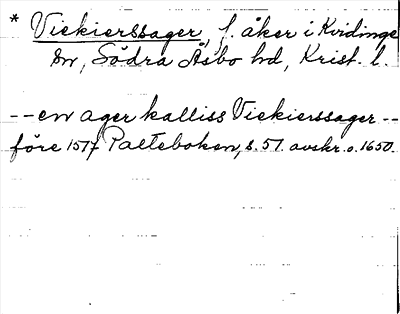 * Viekierssager, f. åker i Kvidinge
sn, Södra Åsbo hd, Krist. l.
-- en ager kalliss Viekierssager --
före 1517 Palteboken, s. 57. avskr. o. 1650.